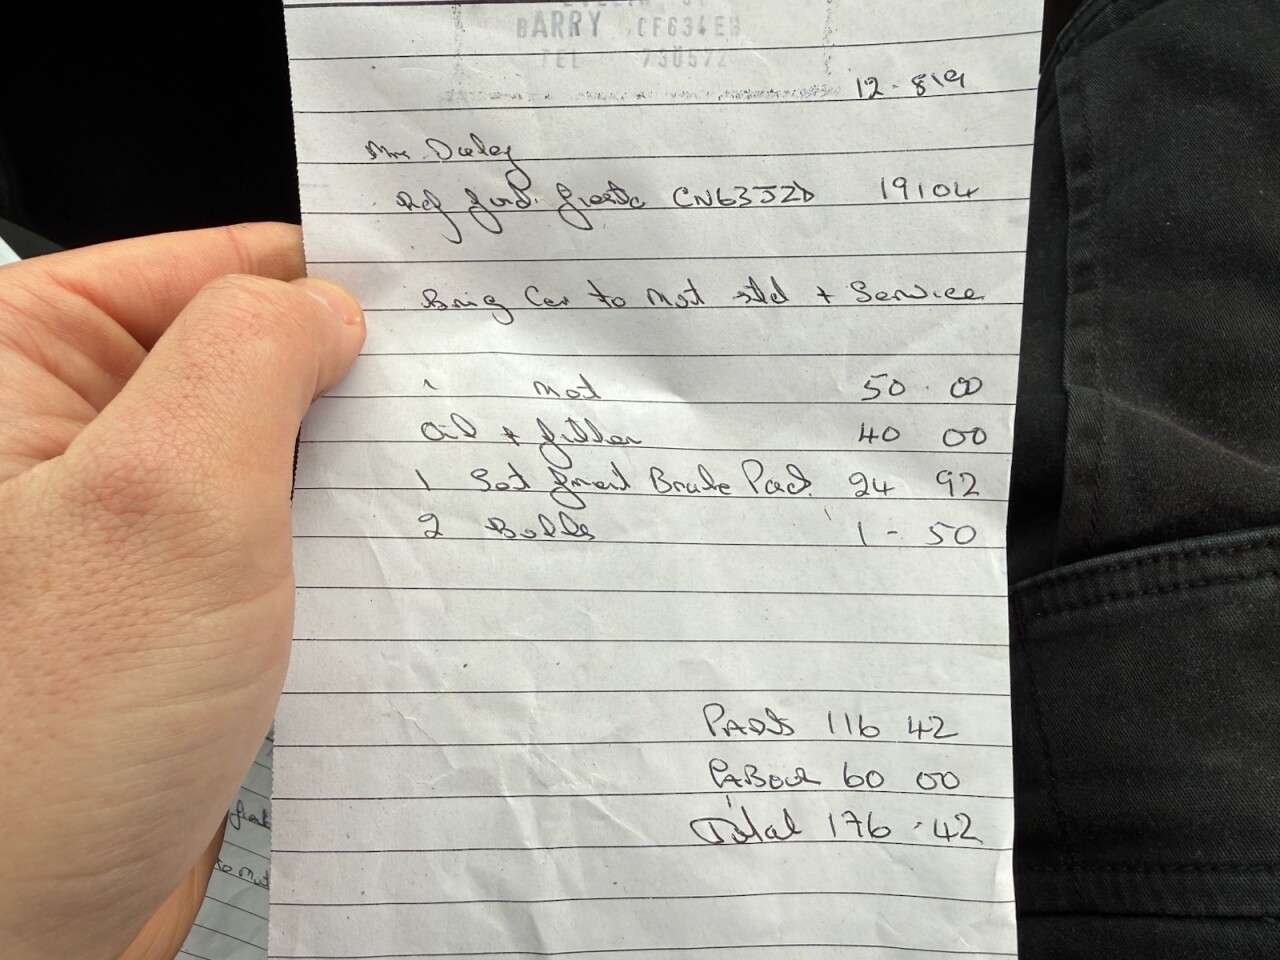 BARRY CF634EB
TEL 730572
12-8 19
Mrs. Daley
Ref ford. fiesta CN63JZD 19104
Bring Car to Mot std + Service
1 Mot 50.00
Oil + filter 40 00
1 Set front Brake Pad. 24 92
2 Bulbs 1-50
PARTS 116 42
LABOUR 60 00
Total 176.42
to Mot